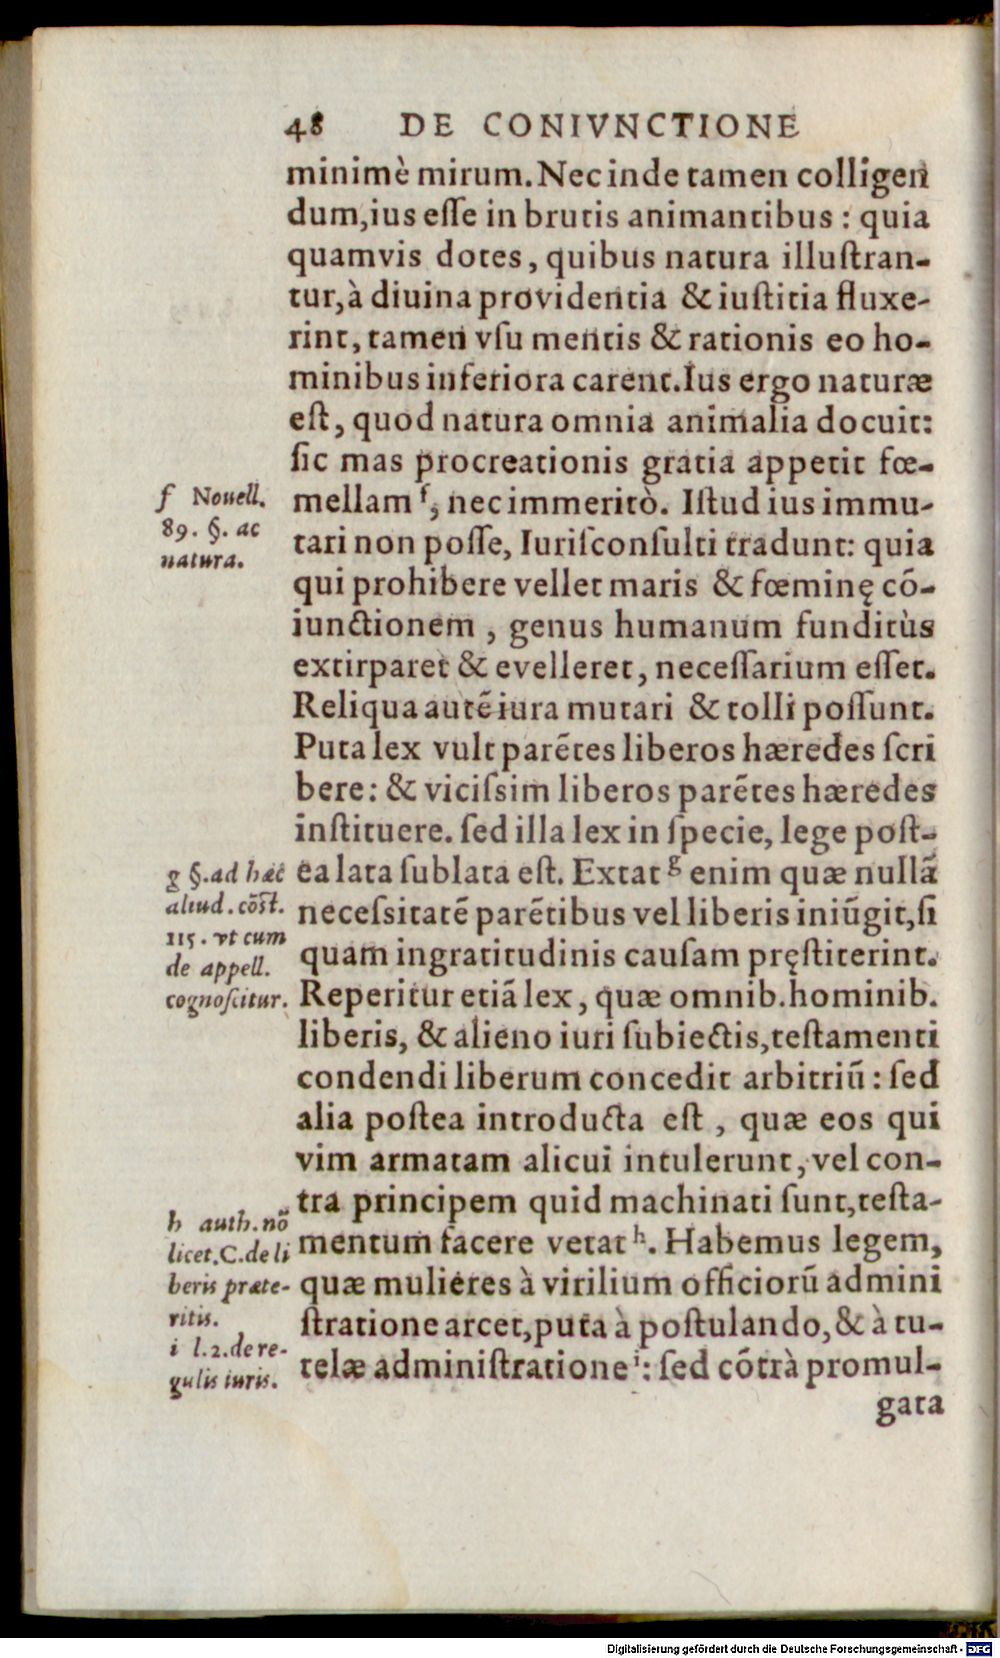 48 DE CONIVNCTIONE
minimè mirum. Nec inde tamen colligen
dum, ius eſſe in brutis animantibus : quia
quamvis dotes, quibus natura illuſtran-
tur, à diuina providentia & iuſtitia fluxe-
rint, tamen vſu mentis & rationis eo ho-
minibus inferiora carent. Ius ergo naturæ
eſt, quod natura omnia animalia docuit:
ſic mas procreationis gratia appetit fœ-
mellam f, nec immeritò. Iſtud ius immu-
tari non poſſe, Iuriſconſulti tradunt: quia
qui prohibere vellet maris & fœminę cō-
iunctionem , genus humanum funditùs
extirparet & evelleret, neceſſarium eſſet.
Reliqua autē iura mutari & tolli poſſunt.
Puta lex vult parētes liberos hæredes ſcri
bere: & viciſsim liberos parētes hæredes
inſtituere. ſed illa lex in ſpecie, lege poſt-
ea lata ſublata eſt. Extat g enim quæ nullā
neceſsitatē parētibus vel liberis iniūgit, ſi
quam ingratitudinis cauſam pręſtiterint.
Reperitur etiā lex, quæ omnib. hominib.
liberis, & alieno iuri ſubiectis, teſtamenti
condendi liberum concedit arbitriū : ſed
alia poſtea introducta eſt , quæ eos qui
vim armatam alicui intulerunt, vel con-
tra principem quid machinati ſunt, teſta-
mentum facere vetat h. Habemus legem,
quæ mulieres à virilium officiorū admini
ſtratione arcet, puta à poſtulando, & à tu-
telæ adminiſtratione i: ſed cōtrà promul-
gata
f Nouell.
89. §. ac
natura.
g §. ad hæc
aliud. cōſt.
115. vt cum
de appell.
cognoſcitur.
h auth. nō
licet. C. de li
beris præte-
ritis.
i l. 2. de re-
gulis iuris.
Digitalisierung gefördert durch die Deutsche Forschungsgemeinschaft - DFG